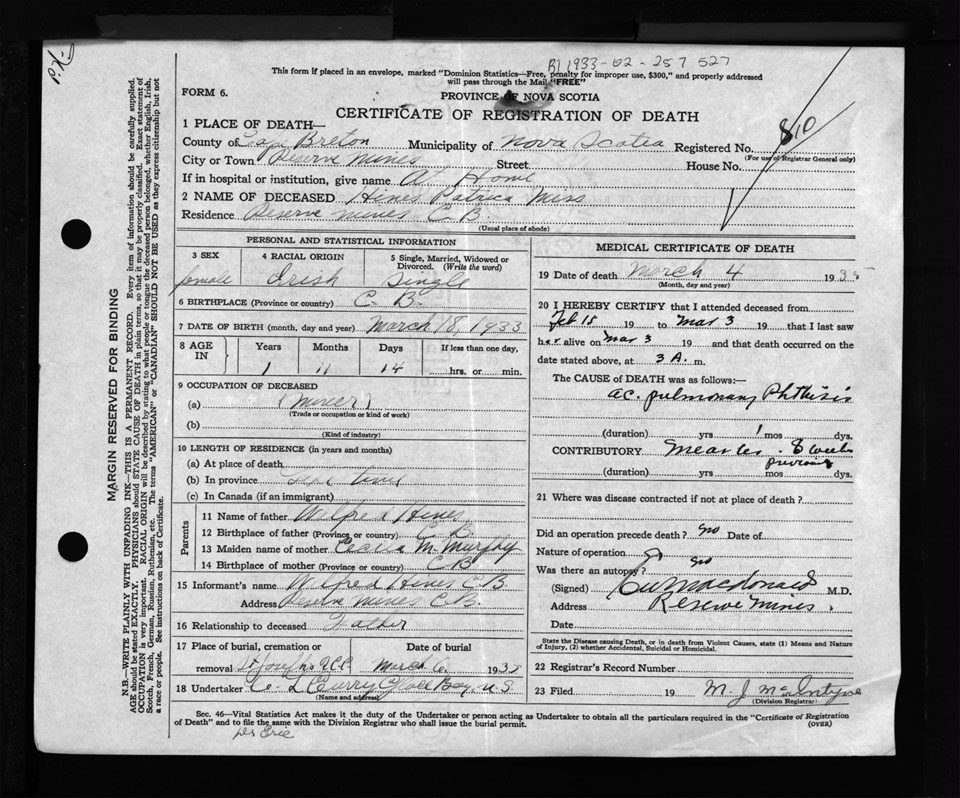 P.X-
B1 1933-02-257 527
This form if placed in an envelope, marked "Dominion Statistics—Free, penalty for improper use, $300," and properly addressed
will pass through the Mail "FREE"
FORM 6.
PROVINCE OF NOVA SCOTIA
CERTIFICATE OF REGISTRATION OF DEATH
810
1 PLACE OF DEATH—
County of Cape Breton Municipality of Nova Scotia Registered No.
(For use of Registrar General only)
City or Town Reserve Mines Street House No.
If in hospital or institution, give name At Home
2 NAME OF DECEASED Hines Patrica Miss
Residence Reserve Mines C.B.
(Usual place of abode)
MARGIN RESERVED FOR BINDING
N.B.—WRITE PLAINLY WITH UNFADING INK—THIS IS A PERMANENT RECORD. Every item of information should be carefully supplied.
AGE should be stated EXACTLY. PHYSICIANS should STATE CAUSE OF DEATH in plain terms, so that it may be properly classified. Exact statement of
OCCUPATION is very important. RACIAL ORIGIN will be described by stating to what people or tongue the deceased person belonged, whether English, Irish,
Scotch, French, German, Russian, Ruthenian, etc. The terms "AMERICAN" or "CANADIAN" SHOULD NOT BE USED as they express citizenship but not
a race or people. See instructions on back of Certificate.
PERSONAL AND STATISTICAL INFORMATION
3 SEX 4 RACIAL ORIGIN 5 Single, Married, Widowed or
Divorced. (Write the word)
female Irish Single
6 BIRTHPLACE (Province or country) C. B.
7 DATE OF BIRTH (month, day and year) March 18, 1933
8 AGE IN Years Months Days If less than one day,
1 11 14 hrs. or min.
9 OCCUPATION OF DECEASED
(a) (miner)
(Trade or occupation or kind of work)
(b)
(Kind of industry)
10 LENGTH OF RESIDENCE (in years and months)
(a) At place of death
(b) In province
(c) In Canada (if an immigrant)
Parents
11 Name of father Wilfred Hines
12 Birthplace of father (Province or country) C. B.
13 Maiden name of mother Cecilia M. Murphy
14 Birthplace of mother (Province or country) C B
15 Informant's name Wilfred Hines C B
Address Reserve Mines C.B.
16 Relationship to deceased Father
17 Place of burial, cremation or Date of burial
removal St Joseph's March 6, 1935
18 Undertaker Curry Glace Bay, N.S.
(Name and address)
MEDICAL CERTIFICATE OF DEATH
19 Date of death March 4 1935
(Month, day and year)
20 I HEREBY CERTIFY that I attended deceased from
Feb 18 19 to Mar 3 19 that I last saw
her alive on Mar 3 19 and that death occurred on the
date stated above, at 3 A. m.
The CAUSE OF DEATH was as follows:—
ac. pulmonary Phthisis
(duration) yrs 1 mos dys.
CONTRIBUTORY Measles - 8 weeks
previous
(duration) yrs mos dys.
21 Where was disease contracted if not at place of death?
Did an operation precede death? No Date of
Nature of operation
Was there an autopsy? No
(Signed) MacDonald M.D.
Address Reserve Mines.
Date
State the Disease causing Death, or in death from Violent Causes, state (1) Means and Nature
of Injury, (2) whether Accidental, Suicidal or Homicidal.
22 Registrar's Record Number
23 Filed 19 M. J. McIntyre
(Division Registrar)
Sec. 46—Vital Statistics Act makes it the duty of the Undertaker or person acting as Undertaker to obtain all the particulars required in the "Certificate of Registration
of Death" and to file the same with the Division Registrar who shall issue the burial permit. (OVER)
per Eric